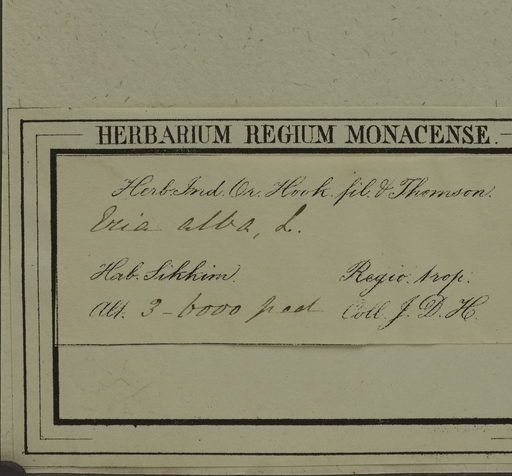 HERBARIUM REGIUM MONACENSE.
Herb. Ind. Or. Hook. fil. & Thomson.
Eria alba, L.
Hab. Sikkim. Regio. trop.
Alt. 3-6000 ped Coll. J. D. H.